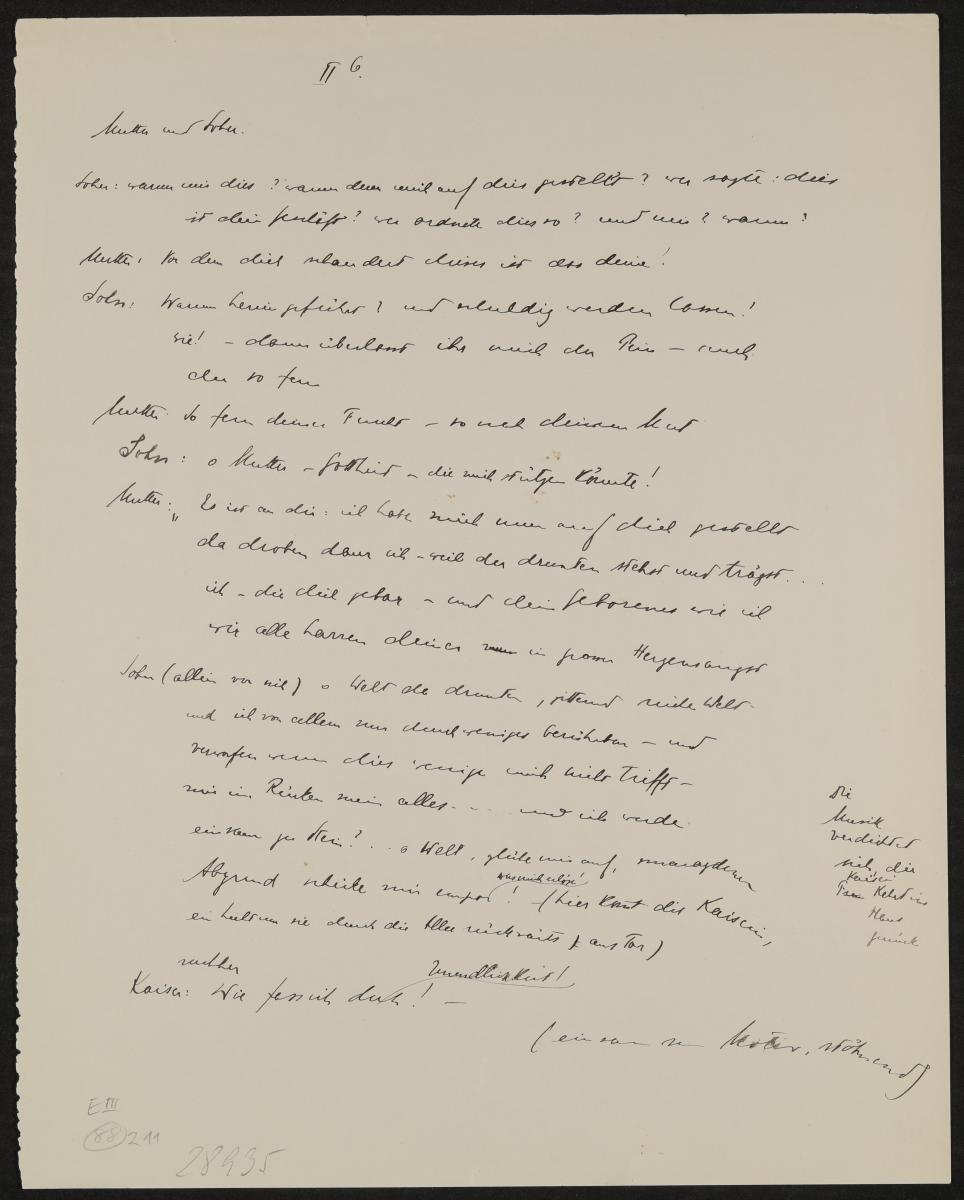 II 6.
Mutter und Sohn.
Sohn: warum mir dies? warum denn mich auf dies gestellt? wer sagte: dies
ist dein Geschäft? wer ordnete dies so? und mir? warum?
Mutter: Vor dem dich schaudert dieses ist das deine!
Sohn: Warum herein geführt? und schuldig werden lassen!
wie! – dann überlasst ihr mich der Pein – auch
du so fern
Mutter: So fern deiner Furcht – so nah deinem Mut
Sohn: o Mutter – Gottheit – die mich stützen könnte!
Mutter: Es ist an dir: ich habe mich nun auf dich gestellt
da droben dann ich – weil du drunten stehst und trägst...
ich – die dich gebar – und dein Geborenes wie ich
wir alle harren deiner in grosser Herzensangst
Sohn (allein vor sich) o Welt da drunten, Welt –
und ich von allem nur durch weniges berührbar – und
verworfen wenn dies wenige mich nicht trifft –
mir im Rücken mein alles – ... und ich werde
einsam zu Stein? .. o Welt, glüh mir auf, smaragdener
Abgrund schicke mir empor was mich erlöse! (hier kommt die Kaiserin,
ein sie durch die Allee rückwärts ans Tor)
Kaiser: Wie fass ich dich! – Unendlichkeit!
(einsam stöhnend)
Die
Musik
verdichtet
sich, die
Kaiserin
kehrt ins
Haus
zurück
E III
(88) 211
28935